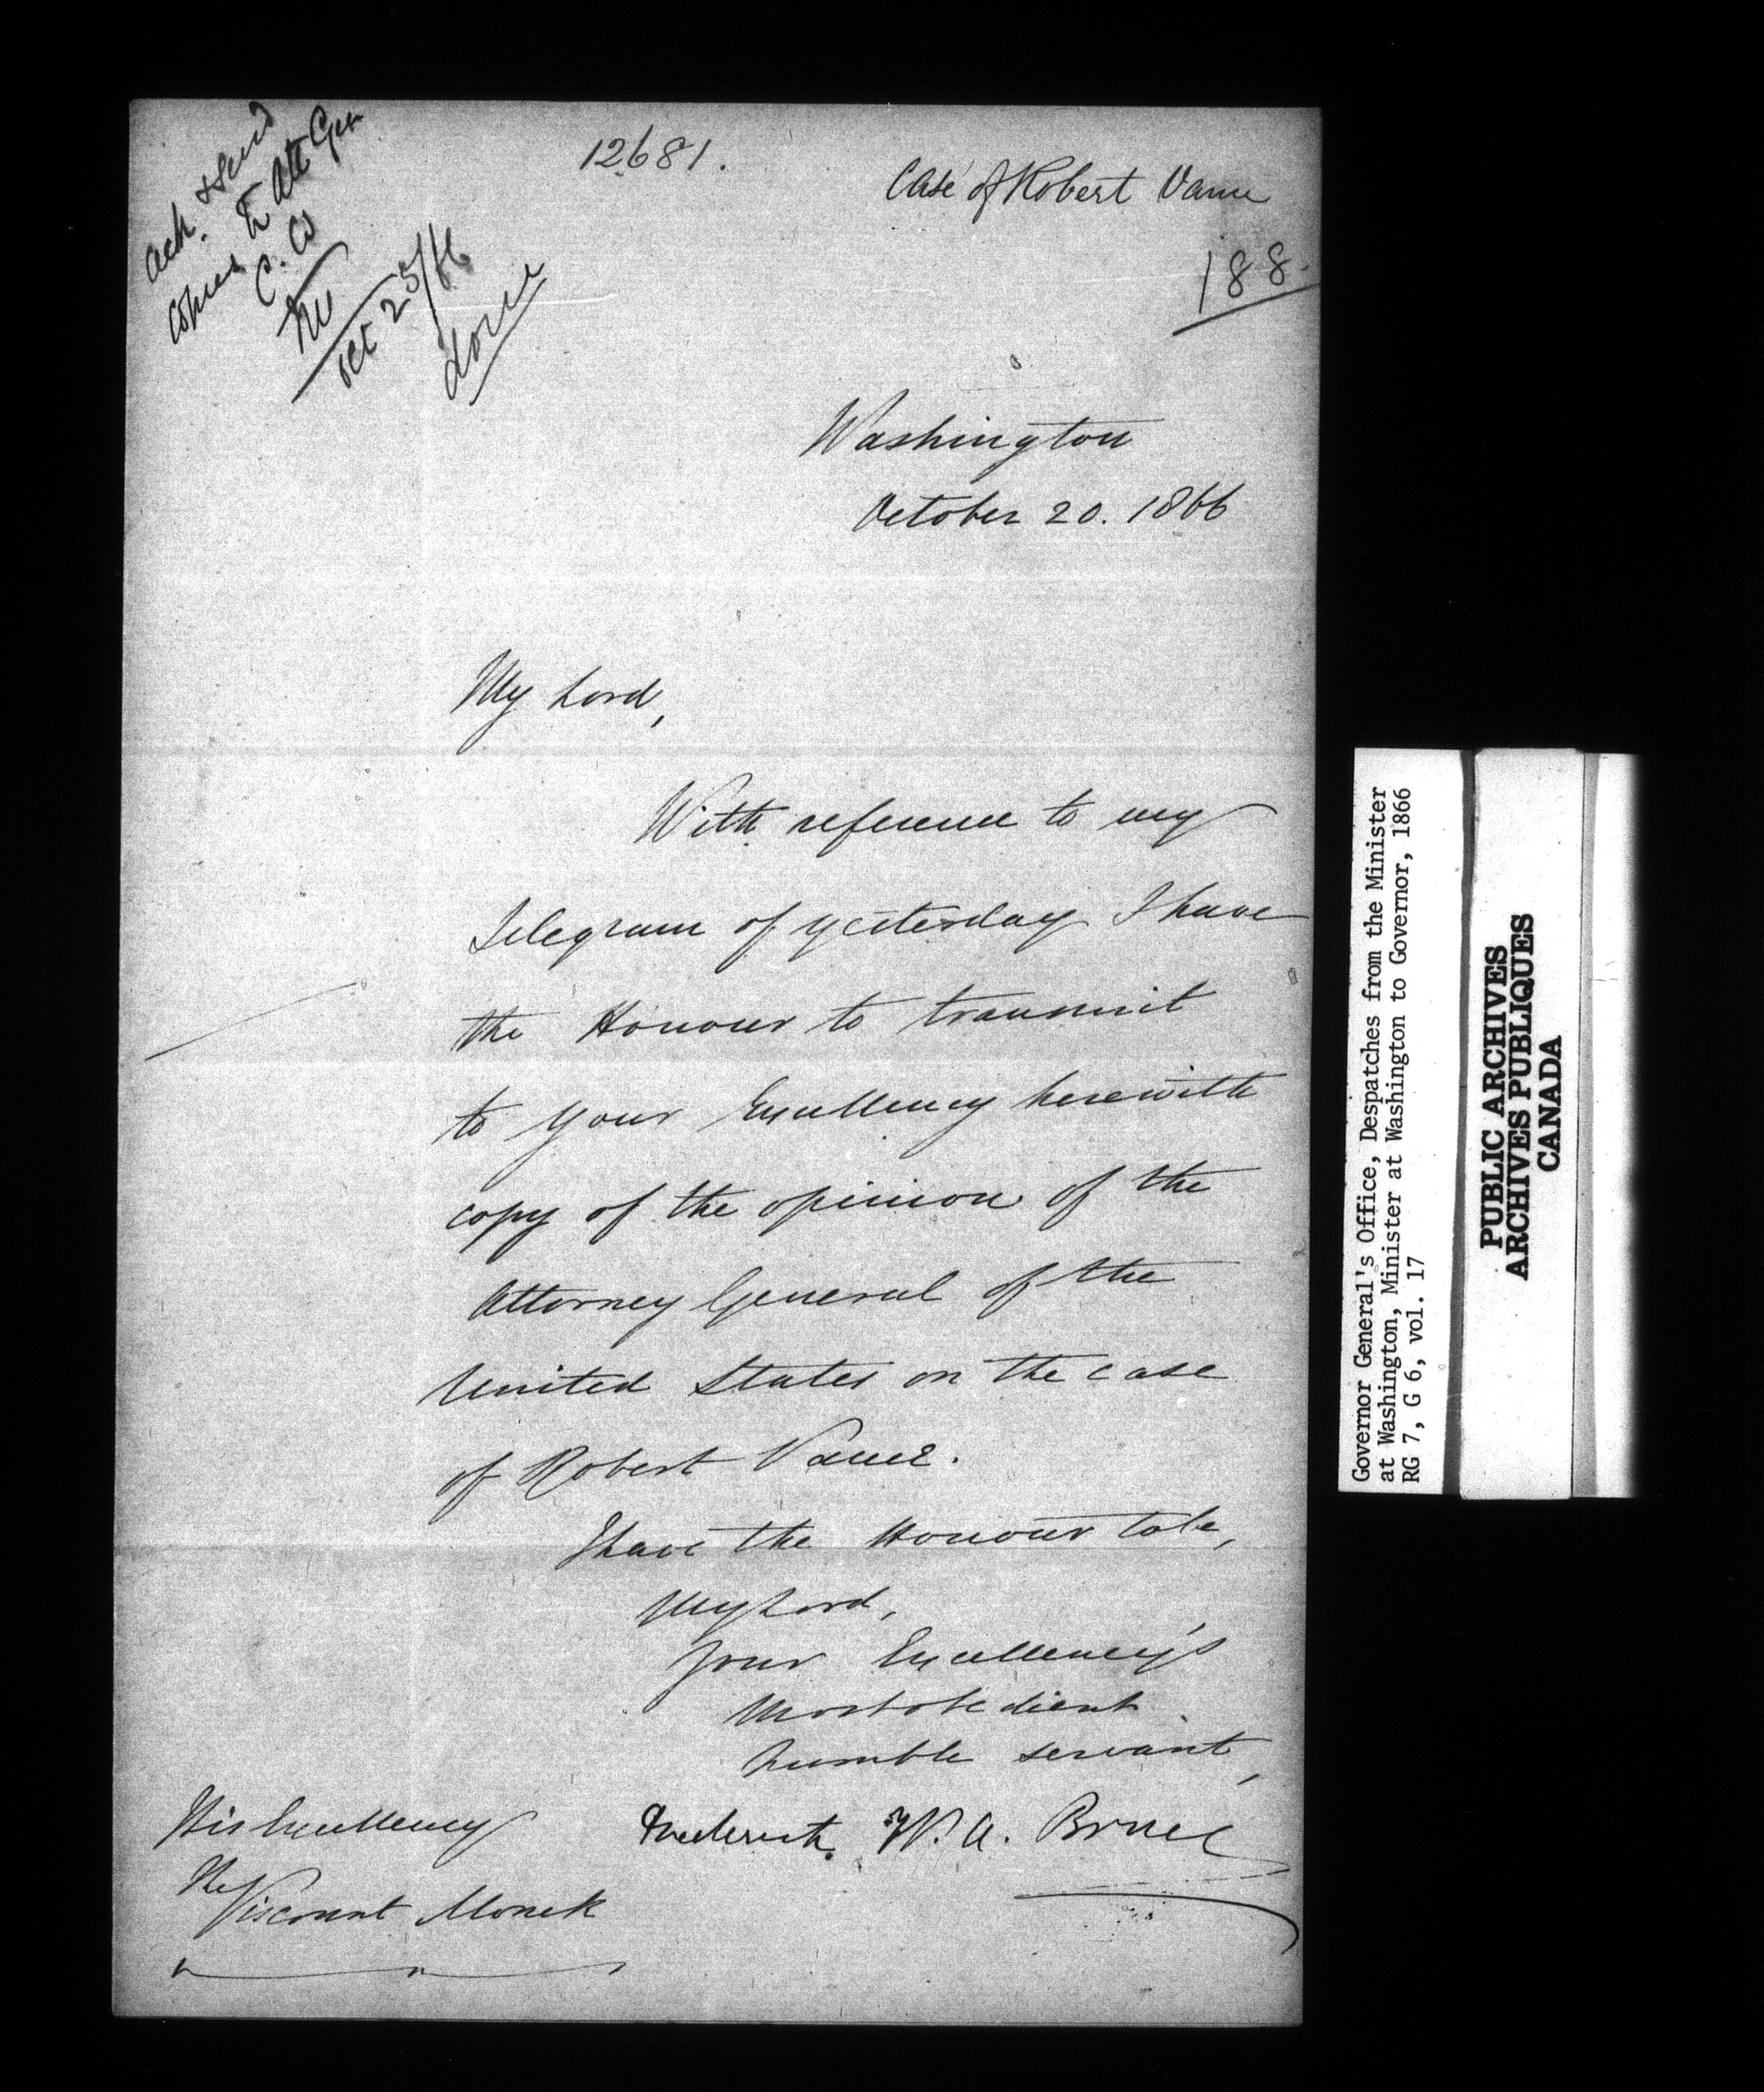 12681.
Case of Robert Vance
188
ack. & send
copies to Att Gen
C. W
M
Oct 25/66
done
Washington
October 20. 1866
My Lord,
With reference to my
Telegram of yesterday I have
the Honour to transmit
to Your Excellency herewith
copy of the opinion of the
Attorney General of the
United States on the case
of Robert Vance.
I have the Honour to be,
My Lord,
Your Excellency's
Most obedient
humble servant,
Frederick W. A. Bruce
His Excellency
The Viscount Monck
Governor General's Office, Despatches from the Minister
at Washington, Minister at Washington to Governor, 1866
RG 7, G 6, vol. 17
PUBLIC ARCHIVES
ARCHIVES PUBLIQUES
CANADA